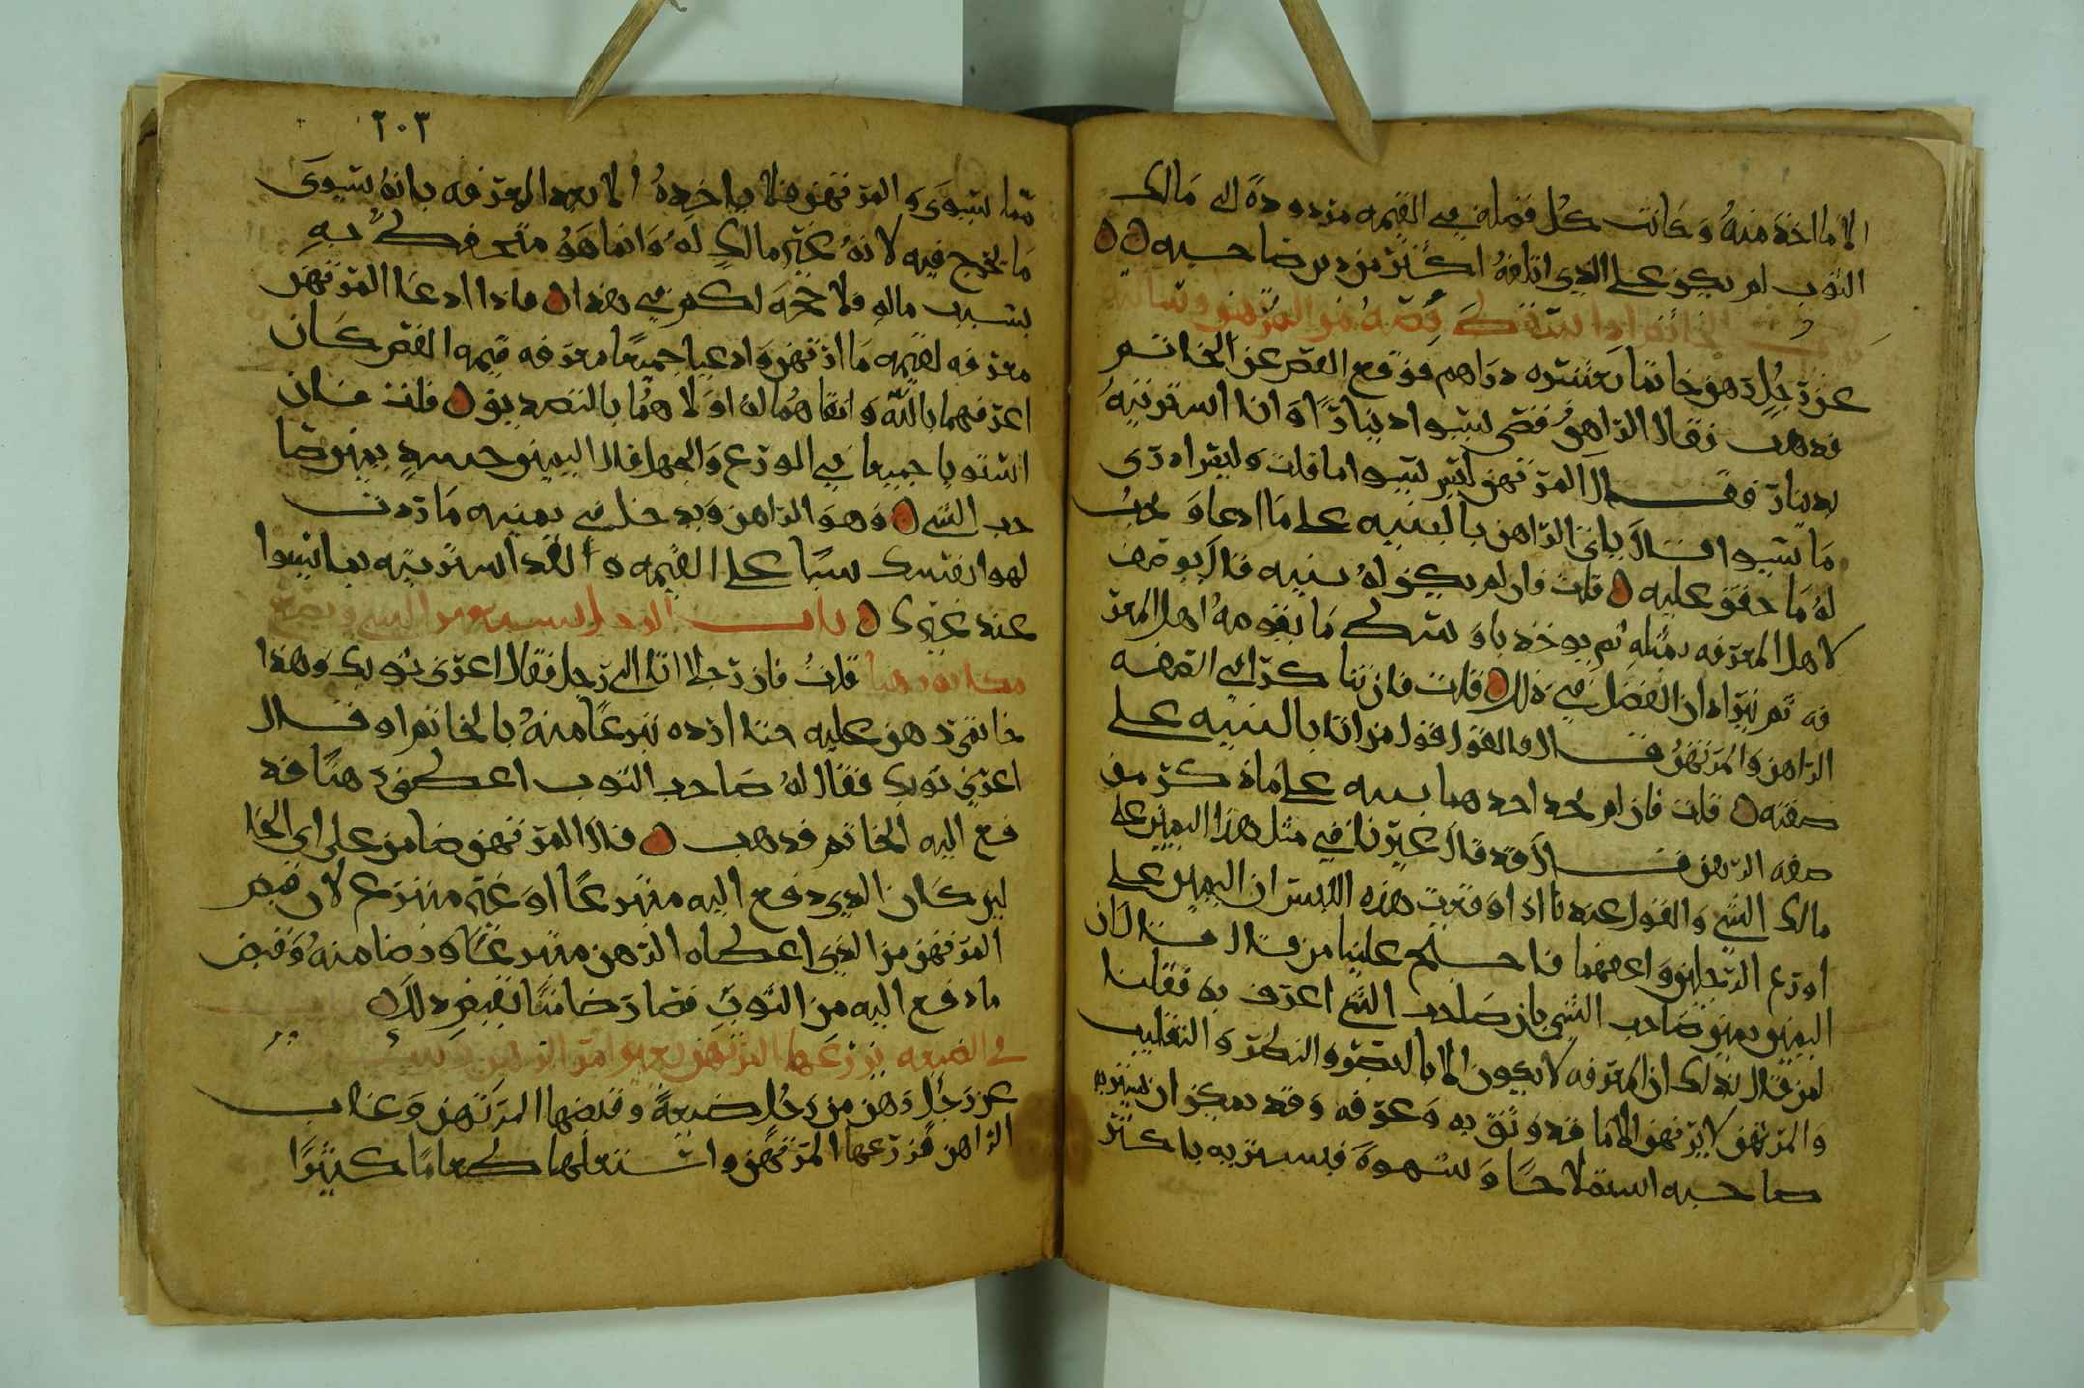 الا ما اخذ منه وكانت كل فضله في القيمه مردوده الى مالك
الثوب لم يكن على الذي اتلفه اكثر من رضا صاحبه
الخاتم اذا سقط فصه من المرتهن وسالت
عن رجل رهن خاتما بعشره دراهم فوقع الفص عن الخاتم
فذهب فقال الراهن فصي يسوا دينارا وانا اشتريته
بدينار فقال المرتهن ليس يسوا ما قلت وليس ادري
ما يسوا قال ياتي الراهن بالبينه على ما ادعا ويجب
له ما حقق عليه قلت فان لم يكن له بينه قال يوصف
لاهل المعرفه بمثله ثم يوخذ باوسط ما يقومه اهل المعر
فه ثم يترادان الفضل في ذلك قلت فان تناكرا في الصفه
الراهن والمرتهن قال فالقول قول من اتا بالبينه على
صفته قلت فان لم يجد احدهما بينه على ما ذكر من
صفه الرهن قال قد قال غيرنا في مثل هذا اليمين على
مالك الشي والقول عندنا اذا وقعت هذه اللبس ان اليمين على
اورع الرجلين واعفهما فاحتج علينا من قال قال ان
اليمين يمين صاحب الشي بان صاحب الشي اعرف به فقلنا
لمن قال بذلك ان المعرفه لا يكون الا بالبصر والنظر والتقليب
والمرتهن لا يرتهن الا ما قد وثق به وعرفه وقد يمكن ان يشتريه
صاحبه استملاحا وشهوة فيشتريه باكثر
٢٠٣
مما يسوى والمرتهن فلا ياخذه الا بعد المعرفه بانه يسوى
ما يخرج فيه لانه غير مالك له وانما هو متحفظ به
بسبب ماله فلا حجه لكم في هذا فاذا ادعا المرتهن
معرفه لقيمه ما ارتهن وادعيا جميعا معرفه قيمه الفص كان
اعرفهما بالله واتقاهما له اولاهما بالتصديق قلت فان
استويا جميعا في الورع والجهل قال اليمين حينئذ يمين صا
حب الشي وهو الراهن ويدخل في يمينه ما رددت
لهو ا بفصك سببا على القيمه ولقد اشتريته بما يسوا
عند غيرك باب الرجل يستعير الشي ويضع
مكانه رهنا قلت فان رجلا اتا الى رجل فقال اعرني ثوبك وهذا
خاتمي رهن عليه حتا ارده تبرعا منه بالخاتم او قال
اعرني ثوبك فقال له صاحب الثوب اعطني رهنا فد
فع اليه الخاتم فذهب قال المرتهن ضامن على اي الحا
لين كان الذي دفع اليه متبرعا او غير متبرع لان قبض
المرتهن من الذي اعطاه الرهن متبرعا ورضا منه وقبض
ما دفع اليه من الثوب فصار ضامنا بقبض ذلك
في الضيعه يزرعها المرتهن بغير امر الراهن وسالت
عن رجل رهن من رجل ضيعة وقبضها المرتهن وغاب
الراهن فزرعها المرتهن واستغلها طعاما كثيرا